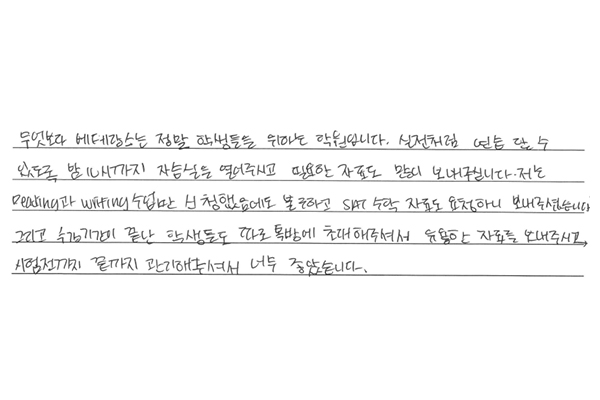 무엇보다 베테랑스는 정말 학생들을 위하는 학원입니다. 실전처럼 연습 할 수
있도록 밤 10시까지 자습실을 열어주시고 필요한 자료도 많이 보내주십니다. 저는
Reading과 Writing 수업만 신청했음에도 불구하고 SAT 수학 자료도 요청하니 보내주셨습니다
그리고 수강기간이 끝난 학생들도 따로 톡방에 초대해주셔서 유용한 자료를 보내주시고,
시험전까지 끝까지 관리해주셔서 너무 좋았습니다.